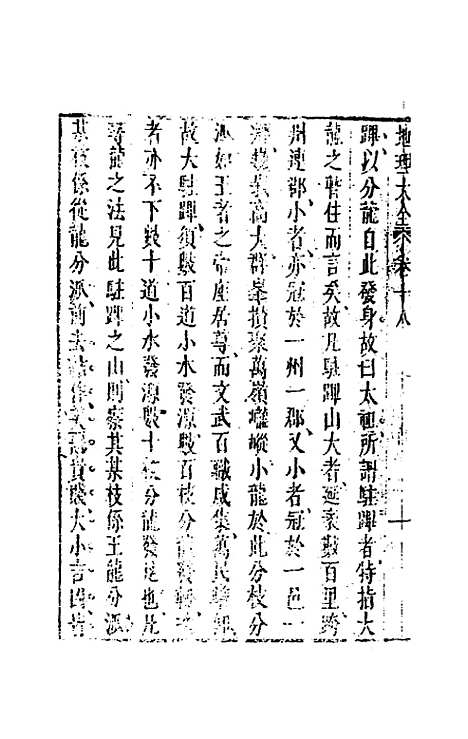 地理大全卷十八
蹕以分龍自此發身故曰太祖所謂駐蹕者特指大
龍之暫住而言矣故凡駐蹕山大者延袤數百里跨
州連郡小者亦冠於一州一郡又小者冠於一邑一
最高大群峯攢聚萬嶺巃嵸小龍於此分枝分
如王者之帝座居尊而文武百職咸集萬民擧
故大駐蹕須數百道小水發源數百枝分龍發
者亦不下數十道小水發源數十枝分龍發足也凡
尋龍之法見此駐蹕之山則察其某枝係王龍分派
某枝係從龍分派前去貴賤大小吉凶皆